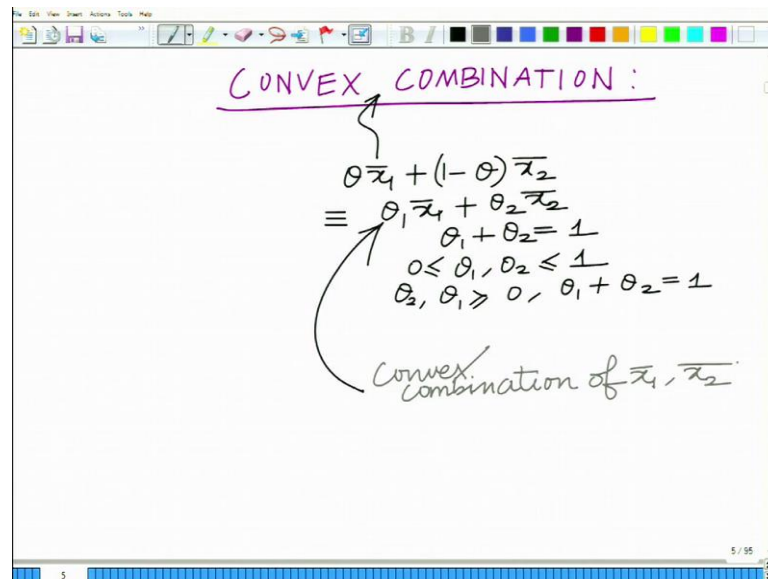 File Edit View Insert Actions Tools Help
B I
CONVEX COMBINATION :
θx̄₁ + (1-θ)x̄₂
≡ θ₁x̄₁ + θ₂x̄₂
θ₁ + θ₂ = 1
0 ≤ θ₁, θ₂ ≤ 1
θ₂, θ₁ ⩾ 0, θ₁ + θ₂ = 1
convex
combination of x̄₁, x̄₂
5 / 95
5